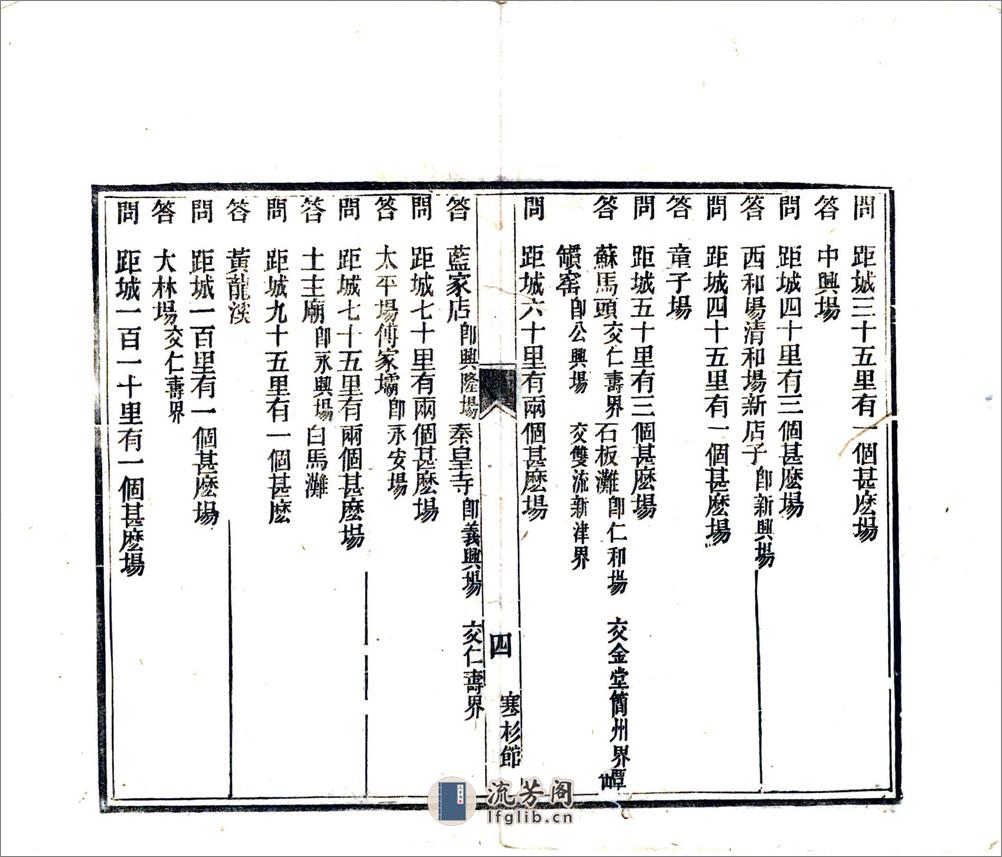 問 距城三十五里有一個甚麽場
答 中興場
問 距城四十里有三個甚麽場
答 西和場清和場新店子卽新興場
問 距城四十五里有一個甚麽場
答 童子場
問 距城五十里有三個甚麽場
答 蘇馬頭交仁壽界 石板灘卽仁和場 交金堂簡州界
窰卽公興場 交雙流新津界
問 距城六十里有兩個甚麽場
四 寒杉館
答 藍家店卽興隆場 秦皇寺卽義興場 交仁壽界
問 距城七十里有兩個甚麽場
答 太平場傅家壩卽永安場
問 距城七十五里有兩個甚麽場
答 土主廟卽永興場白馬灘
問 距城九十五里有一個甚麽
答 黃龍溪
問 距城一百里有一個甚麽場
答 大林場交仁壽界
問 距城一百一十里有一個甚麽場
流芳阁
lfglib.cn